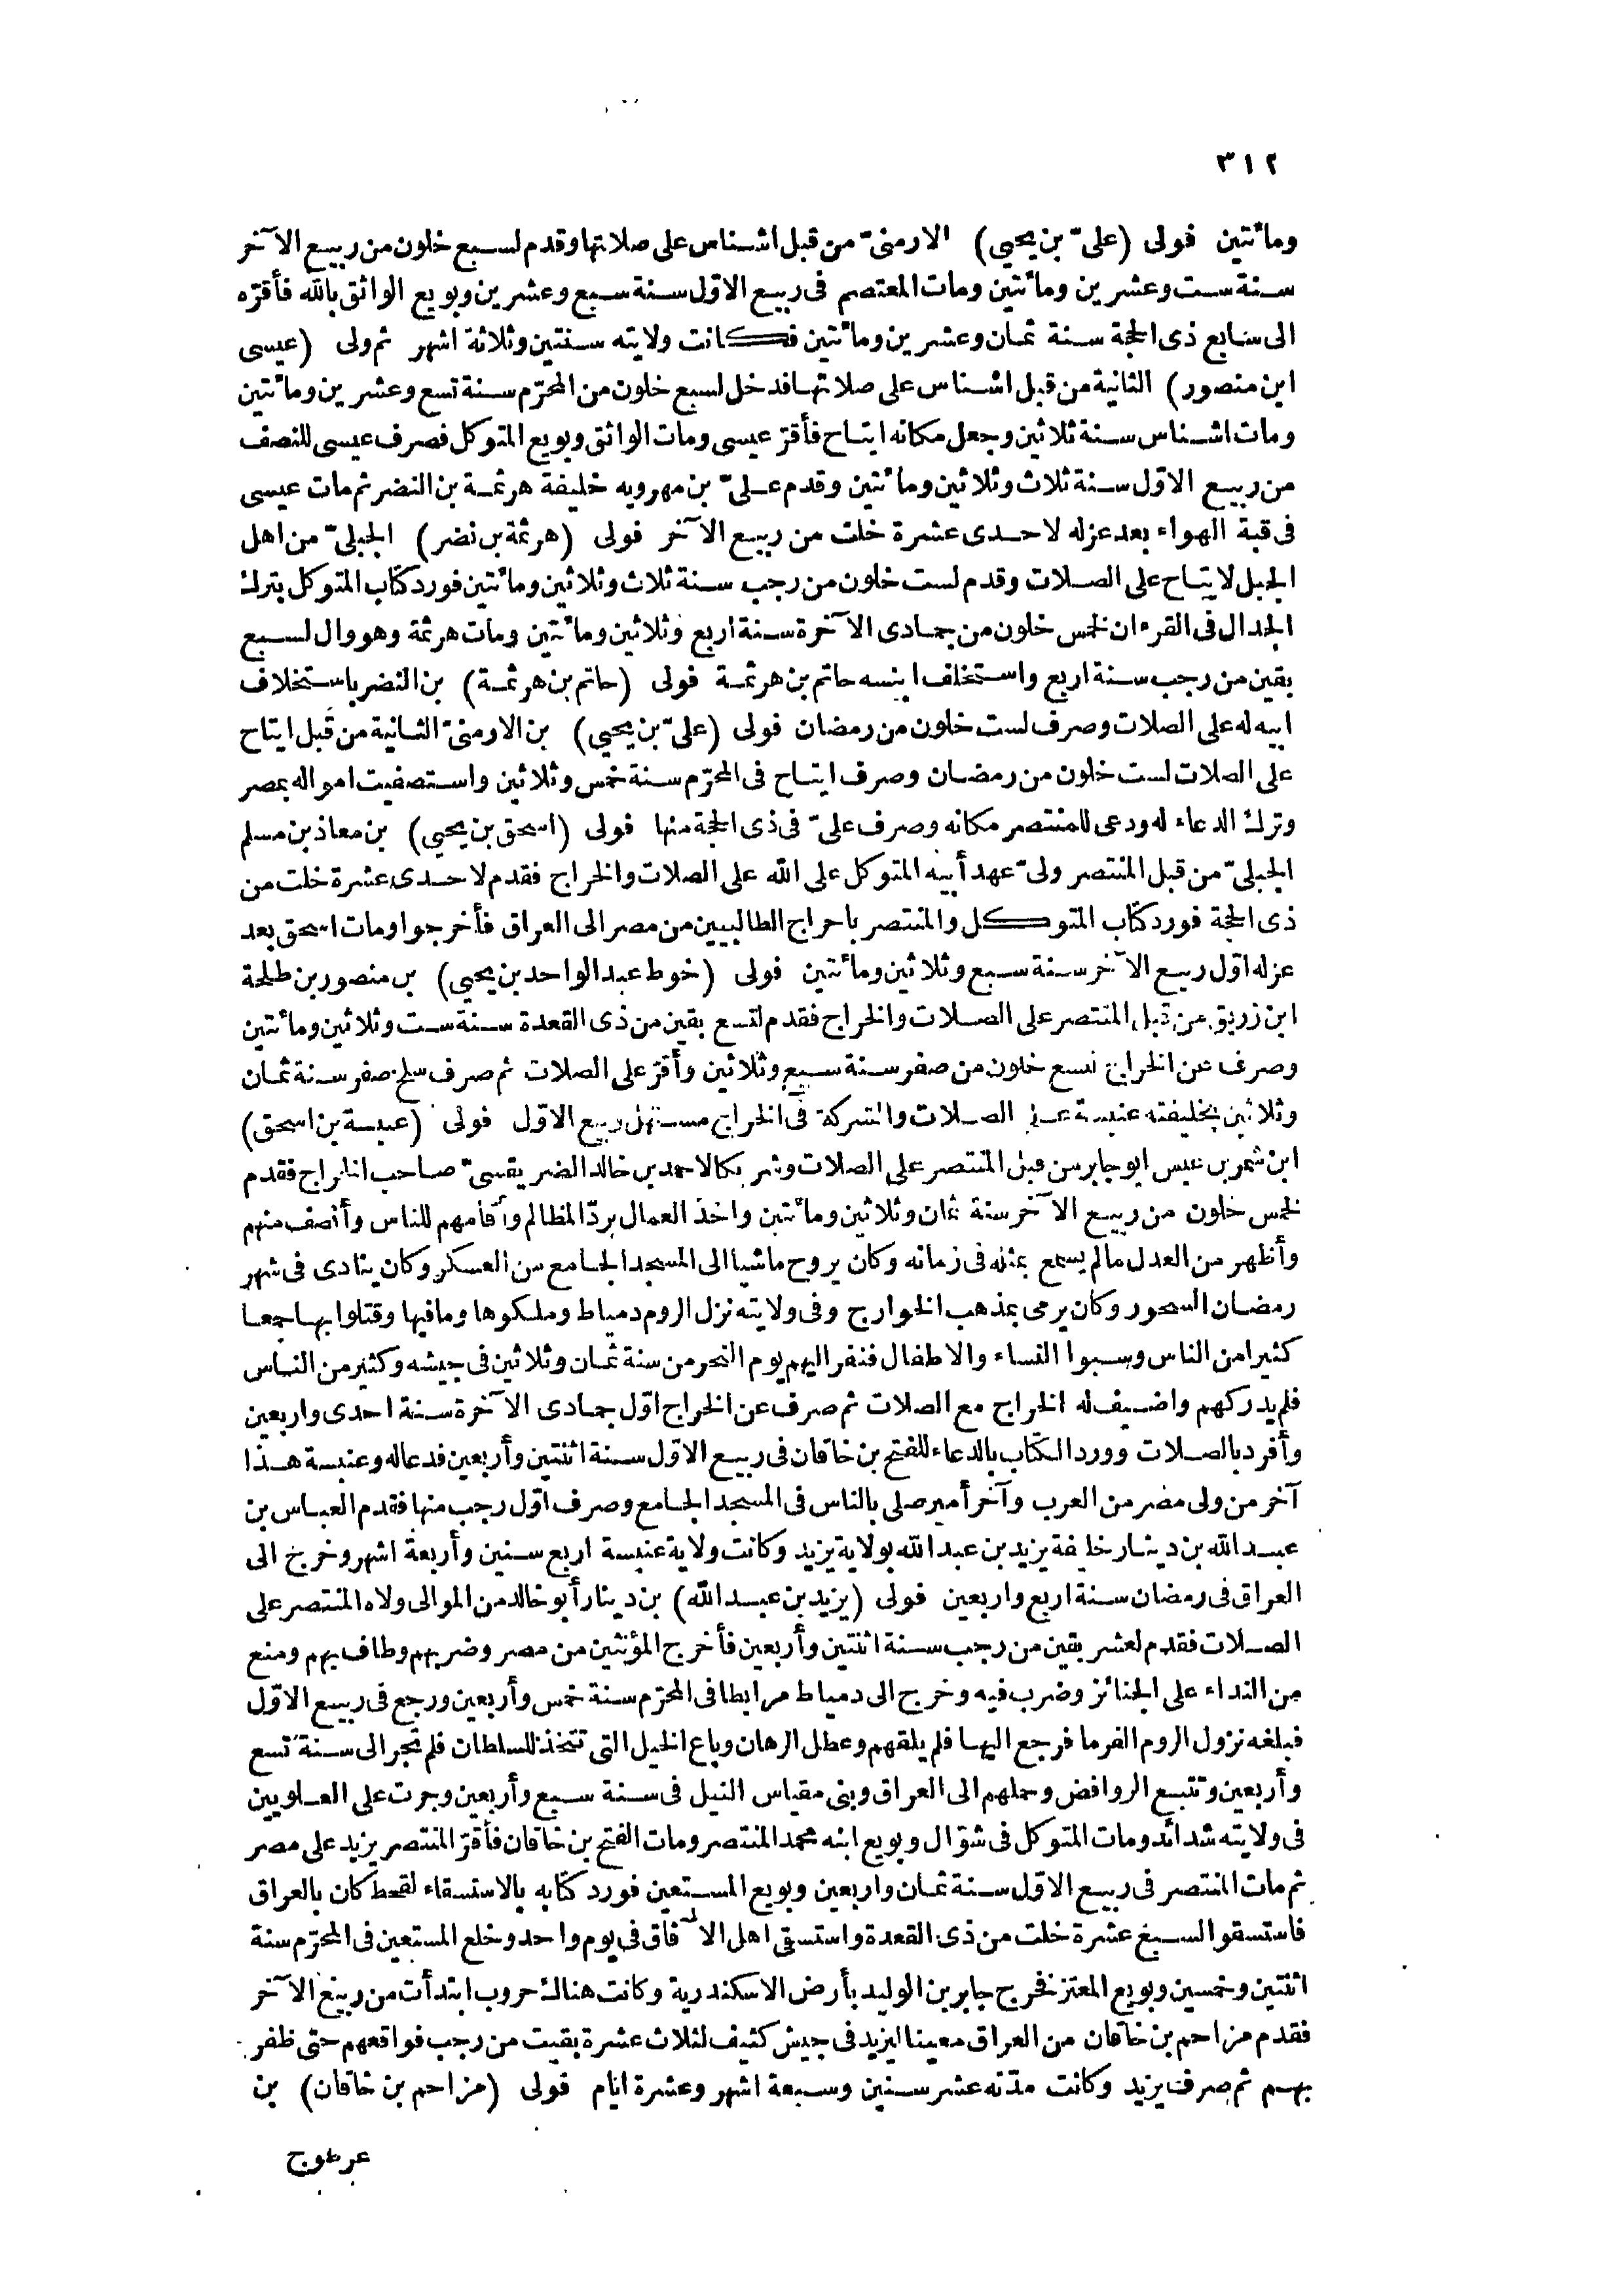 ٣١٢
ومائتين فولى (علىّ بن يحيي) الارمنىّ من قبل اشناس على صلاتها وقدم لسبع خلون من ربيع الآخر
سنة ست وعشرين ومائتين ومات المعتصم فى ربيع الاوّل سنة سبع وعشرين وبويع الواثق بالله فأقرّه
الى سابع ذى الحجة سنة ثمان وعشرين ومائتين فكانت ولايته سنتين وثلاثة اشهر ثم ولى (عيسى
ابن منصور) الثانية من قبل اشناس على صلاتها فدخل لسبع خلون من المحرّم سنة تسع وعشرين ومائتين
ومات اشناس سنة ثلاثين وجعل مكانه ايتاح فأقرّ عيسى ومات الواثق وبويع المتوكل فصرف عيسى للنصف
من ربيع الاوّل سنة ثلاث وثلاثين ومائتين وقدم علىّ بن مهرويه خليفة هرثمة بن النضر ثم مات عيسى
فى قبة الهواء بعد عزله لاحدى عشرة خلت من ربيع الآخر فولى (هرثمة بن نضر) الجبلىّ من اهل
الجبل لايتاح على الصلات وقدم لست خلون من رجب سنة ثلاث وثلاثين ومائتين فورد كتاب المتوكل بترك
الجدال فى القرءان لخمس خلون من جمادى الآخرة سنة اربع وثلاثين ومائتين ومات هرثمة وهو وال لسبع
بقين من رجب سنة اربع واستخلف ابنه حاتم بن هرثمة فولى (حاتم بن هرثمة) بن النضر باستخلاف
ابيه له على الصلات وصرف لست خلون من رمضان فولى (علىّ بن يحيي) بن الارمنىّ الثانية من قبل ايتاح
على الصلات لست خلون من رمضان وصرف ايتاح فى المحرّم سنة خمس وثلاثين واستصفيت امواله بمصر
وترك الدعاء له ودعى للمنتصر مكانه وصرف علىّ فى ذى الحجة منها فولى (اسحق بن يحيي) بن معاذ بن مسلم
الجبلىّ من قبل المنتصر ولىّ عهد أبيه المتوكل على الله على الصلات والخراج فقدم لاحدى عشرة خلت من
ذى الحجة فورد كتاب المتوكل والمنتصر باحراج الطالبيين من مصر الى العراق فأخرجوا ومات اسحق بعد
عزله اوّل ربيع الآخر سنة سبع وثلاثين ومائتين فولى (خوط عبد الواحد بن يحيي) بن منصور بن طلحة
ابن زريق من قبل المنتصر على الصلات والخراج فقدم لتسع بقين من ذى القعدة سنة ست وثلاثين ومائتين
وصرف عن الخراج لتسع خلون من صفر سنة سبع وثلاثين وأقرّ على الصلات ثم صرف سلخ صفر سنة ثمان
وثلاثين بخليفته عنبسة على الصلات والشركة فى الخراج مستهل ربيع الاوّل فولى (عنبسة بن اسحق)
ابن شمر بن عبس ابو جابر من قبل المنتصر على الصلات وشريكا لاحمد بن خالد الضريقسىّ صاحب الخراج فقدم
لخمس خلون من ربيع الآخر سنة ثمان وثلاثين ومائتين واخذ العمال بردّ المظالم وأقامهم للناس وأنصف منهم
وأظهر من العدل مالم يسمع بمثله فى زمانه وكان يروح ماشيا الى المسجد الجامع من العسكر وكان ينادى فى شهر
رمضان السحور وكان يرمى بمذهب الخوارج وفى ولايته نزل الروم دمياط وملكوها ومافيها وقتلوا بها جمعا
كثيرا من الناس وسبوا النساء والاطفال فنفر اليهم يوم النحر من سنة ثمان وثلاثين فى جيشه وكثير من الناس
فلم يدركهم واضيف له الخراج مع الصلات ثم صرف عن الخراج اوّل جمادى الآخرة سنة احدى واربعين
وأفرد بالصلات وورد الكتاب بالدعاء للفتح بن خاقان فى ربيع الاوّل سنة اثنتين وأربعين فدعا له وعنبسة هذا
آخر من ولى مصر من العرب وآخر أمير صلى بالناس فى المسجد الجامع وصرف اوّل رجب منها فقدم العباس بن
عبد الله بن دينار خليفة يزيد بن عبد الله بولاية يزيد وكانت ولاية عنبسة اربع سنين وأربعة اشهر وخرج الى
العراق فى رمضان سنة اربع واربعين فولى (يزيد بن عبد الله) بن دينار أبو خالد من الموالى ولاه المنتصر على
الصلات فقدم لعشر بقين من رجب سنة اثنتين وأربعين فأخرج المؤنثين من مصر وضربهم وطاف بهم ومنع
من النداء على الجنائز وضرب فيه وخرج الى دمياط مرابطا فى المحرّم سنة خمس وأربعين ورجع فى ربيع الاوّل
فبلغه نزول الروم الفرما فرجع اليها فلم يلقهم وعطل الرهان وباع الخيل التى تتخذ للسلطان فلم تجر الى سنة تسع
وأربعين وتتبع الروافض وحملهم الى العراق وبنى مقياس النيل فى سنة سبع وأربعين وجرت على العلويين
فى ولايته شدائد ومات المتوكل فى شوّال وبويع ابنه محمد المنتصر ومات الفتح بن خاقان فأقرّ المنتصر يزيد على مصر
ثم مات المنتصر فى ربيع الاوّل سنة ثمان واربعين وبويع المستعين فورد كتابه بالاستسقاء لقحط كان بالعراق
فاستسقوا لسبع عشرة خلت من ذى القعدة واستسقى اهل الآفاق فى يوم واحد وخلع المستعين فى المحرّم سنة
اثنتين وخمسين وبويع المعتز فخرج جابر بن الوليد بأرض الاسكندرية وكانت هناك حروب ابتدأت من ربيع الآخر
فقدم مزاحم بن خاقان من العراق معينا ليزيد فى جيش كثيف لثلاث عشرة بقيت من رجب فواقعهم حتى ظفر
بهم ثم صرف يزيد وكانت مدّته عشر سنين وسبعة اشهر وعشرة ايام فولى (مزاحم بن خاقان) بن
عرطوج